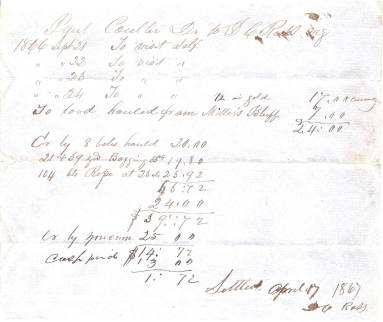 Coulter Dr to D C Ross
1866 Sept 21 To visit Self
" " 22 To visit "
" " 23 To " "
" " 24 To " " 12 in gold 17.00
To load hauled from Miller's Bluff 7.00
24.00
Cr by 8 bales hauld 20.00
yd Bagging 19.80
104 lbs Rope at 23 25.92
65.72
24.00
$ 39.72
Cr by 25 00
$14.72
Cash paid 13 00
1.72
Settled April 17 1867
D C Ross